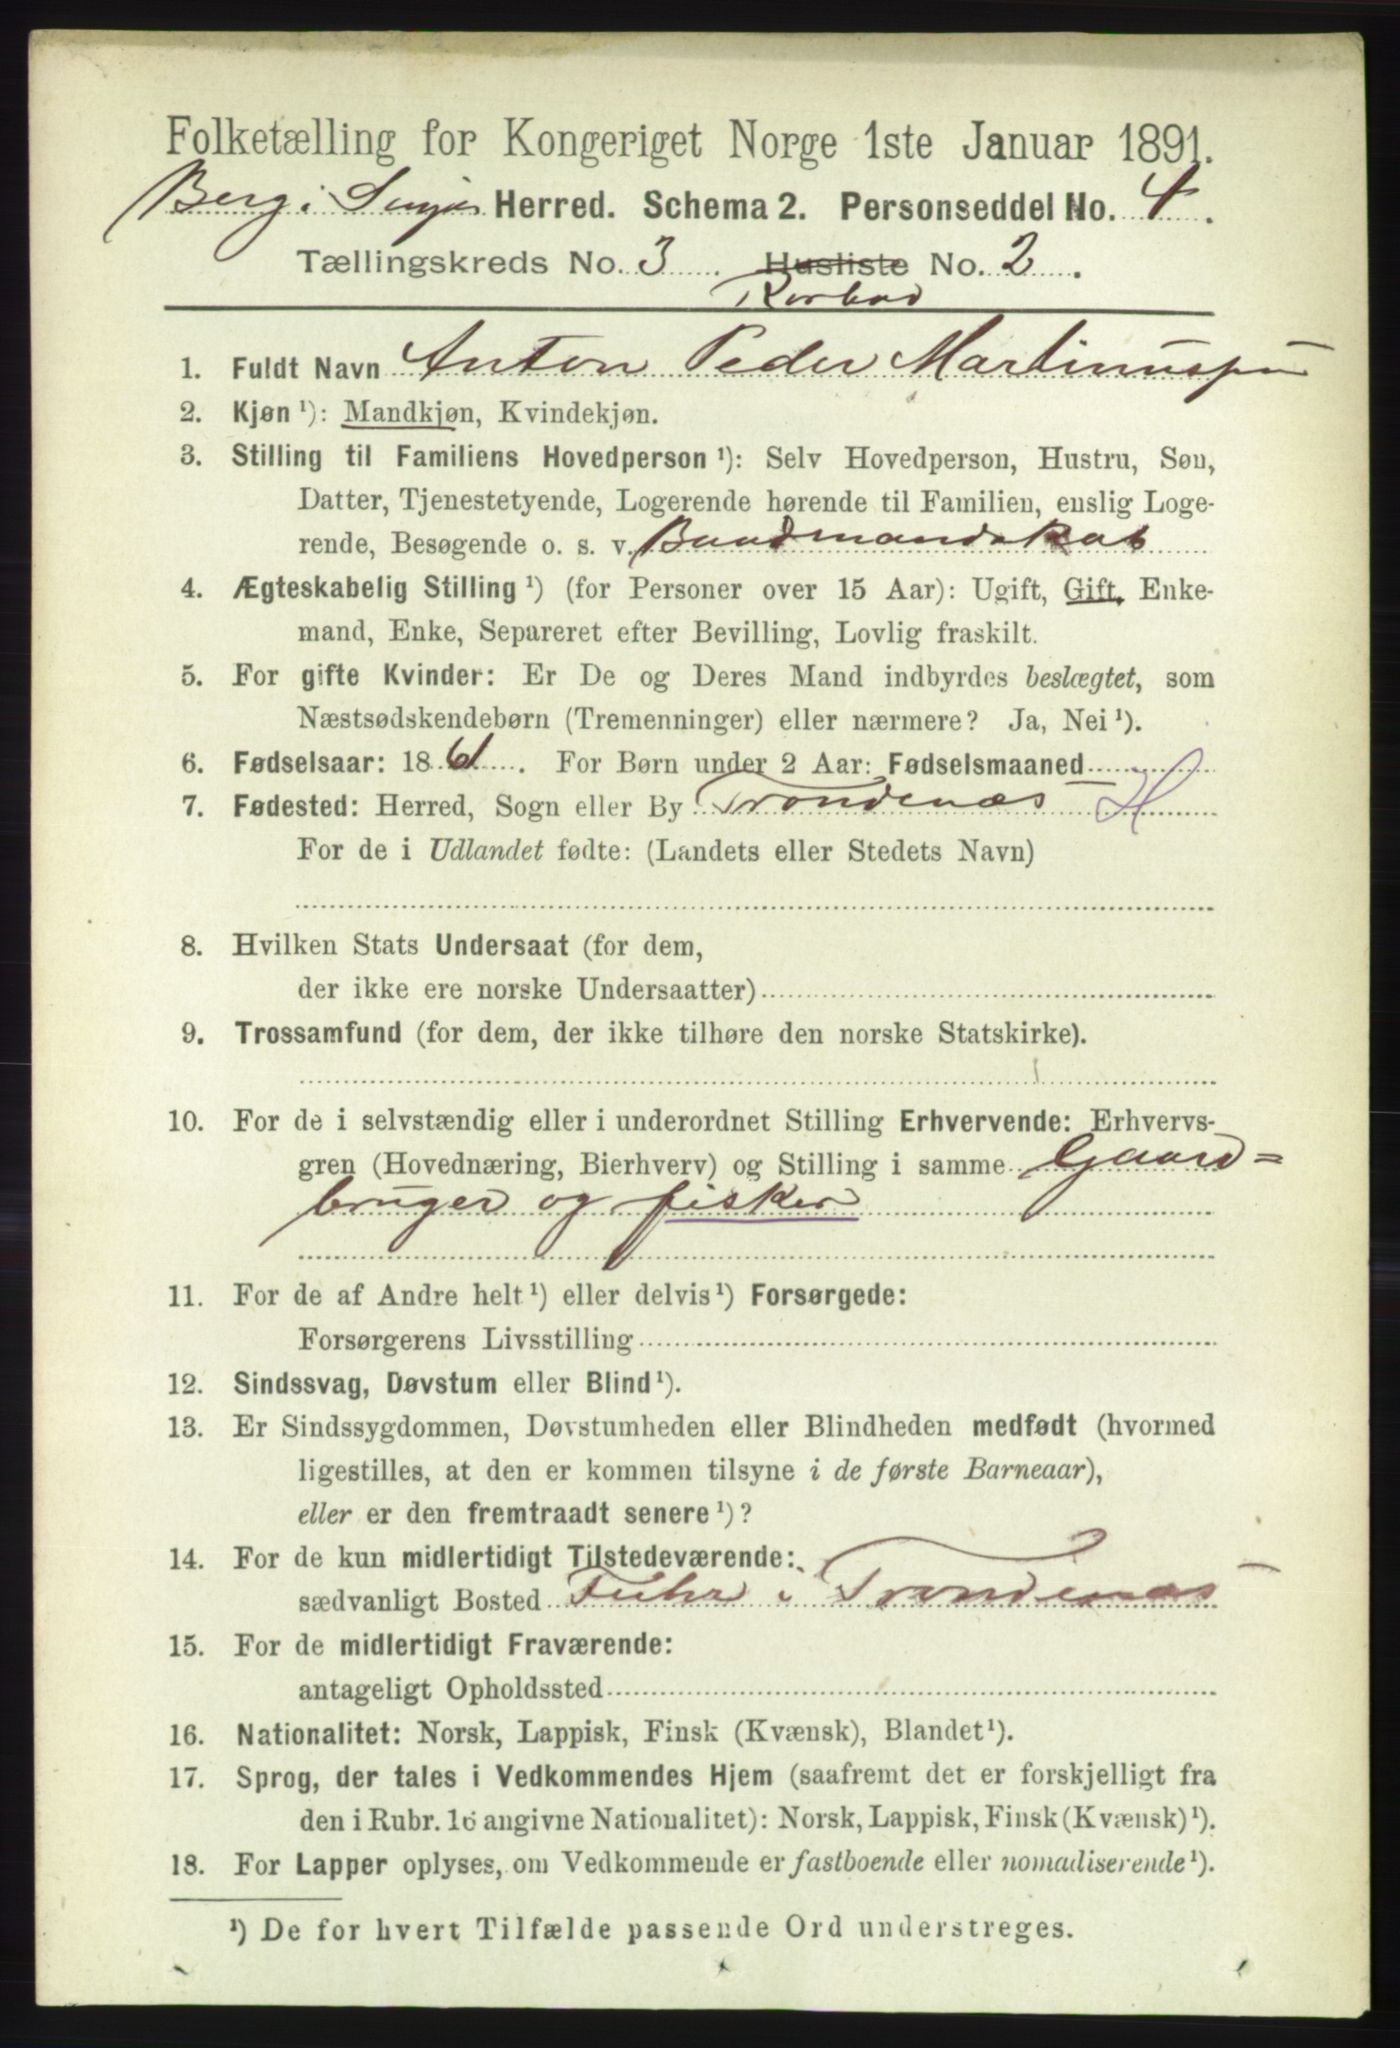 Folketælling for Kongeriget Norge 1ste Januar 1891.
Berg i Senjen Herred. Schema 2. Personseddel No. 4.
Tællingskreds No. 3 Husliste No. 2.
Rorbod
1. Fuldt Navn Anton Peder Martinussen
2. Kjøn ¹): Mandkjøn, Kvindekjøn.
3. Stilling til Familiens Hovedperson ¹): Selv Hovedperson, Hustru, Søn,
Datter, Tjenestetyende, Logerende hørende til Familien, enslig Loge-
rende, Besøgende o. s. v. Baadmandskab
4. Ægteskabelig Stilling ¹) (for Personer over 15 Aar): Ugift, Gift, Enke-
mand, Enke, Separeret efter Bevilling, Lovlig fraskilt.
5. For gifte Kvinder: Er De og Deres Mand indbyrdes beslægtet, som
Næstsødskendebørn (Tremenninger) eller nærmere? Ja, Nei ¹).
6. Fødselsaar: 1861. For Børn under 2 Aar: Fødselsmaaned
7. Fødested: Herred, Sogn eller By Trondenæs H
For de i Udlandet fødte: (Landets eller Stedets Navn)
8. Hvilken Stats Undersaat (for dem,
der ikke ere norske Undersaatter)
9. Trossamfund (for dem, der ikke tilhøre den norske Statskirke).
10. For de i selvstændig eller i underordnet Stilling Erhvervende: Erhvervs-
gren (Hovednæring, Bierhverv) og Stilling i samme Gaard=
bruger og fisker
11. For de af Andre helt ¹) eller delvis ¹) Forsørgede:
Forsørgerens Livsstilling
12. Sindssvag, Døvstum eller Blind ¹).
13. Er Sindssygdommen, Døvstumheden eller Blindheden medfødt (hvormed
ligestilles, at den er kommen tilsyne i de første Barneaar),
eller er den fremtraadt senere ¹)?
14. For de kun midlertidigt Tilstedeværende:
sædvanligt Bosted i Trondenæs
15. For de midlertidigt Fraværende:
antageligt Opholdssted
16. Nationalitet: Norsk, Lappisk, Finsk (Kvænsk), Blandet ¹).
17. Sprog, der tales i Vedkommendes Hjem (saafremt det er forskjelligt fra
den i Rubr. 16 angivne Nationalitet): Norsk, Lappisk, Finsk (Kvænsk) ¹).
18. For Lapper oplyses, om Vedkommende er fastboende eller nomadiserende ¹).
¹) De for hvert Tilfælde passende Ord understreges.